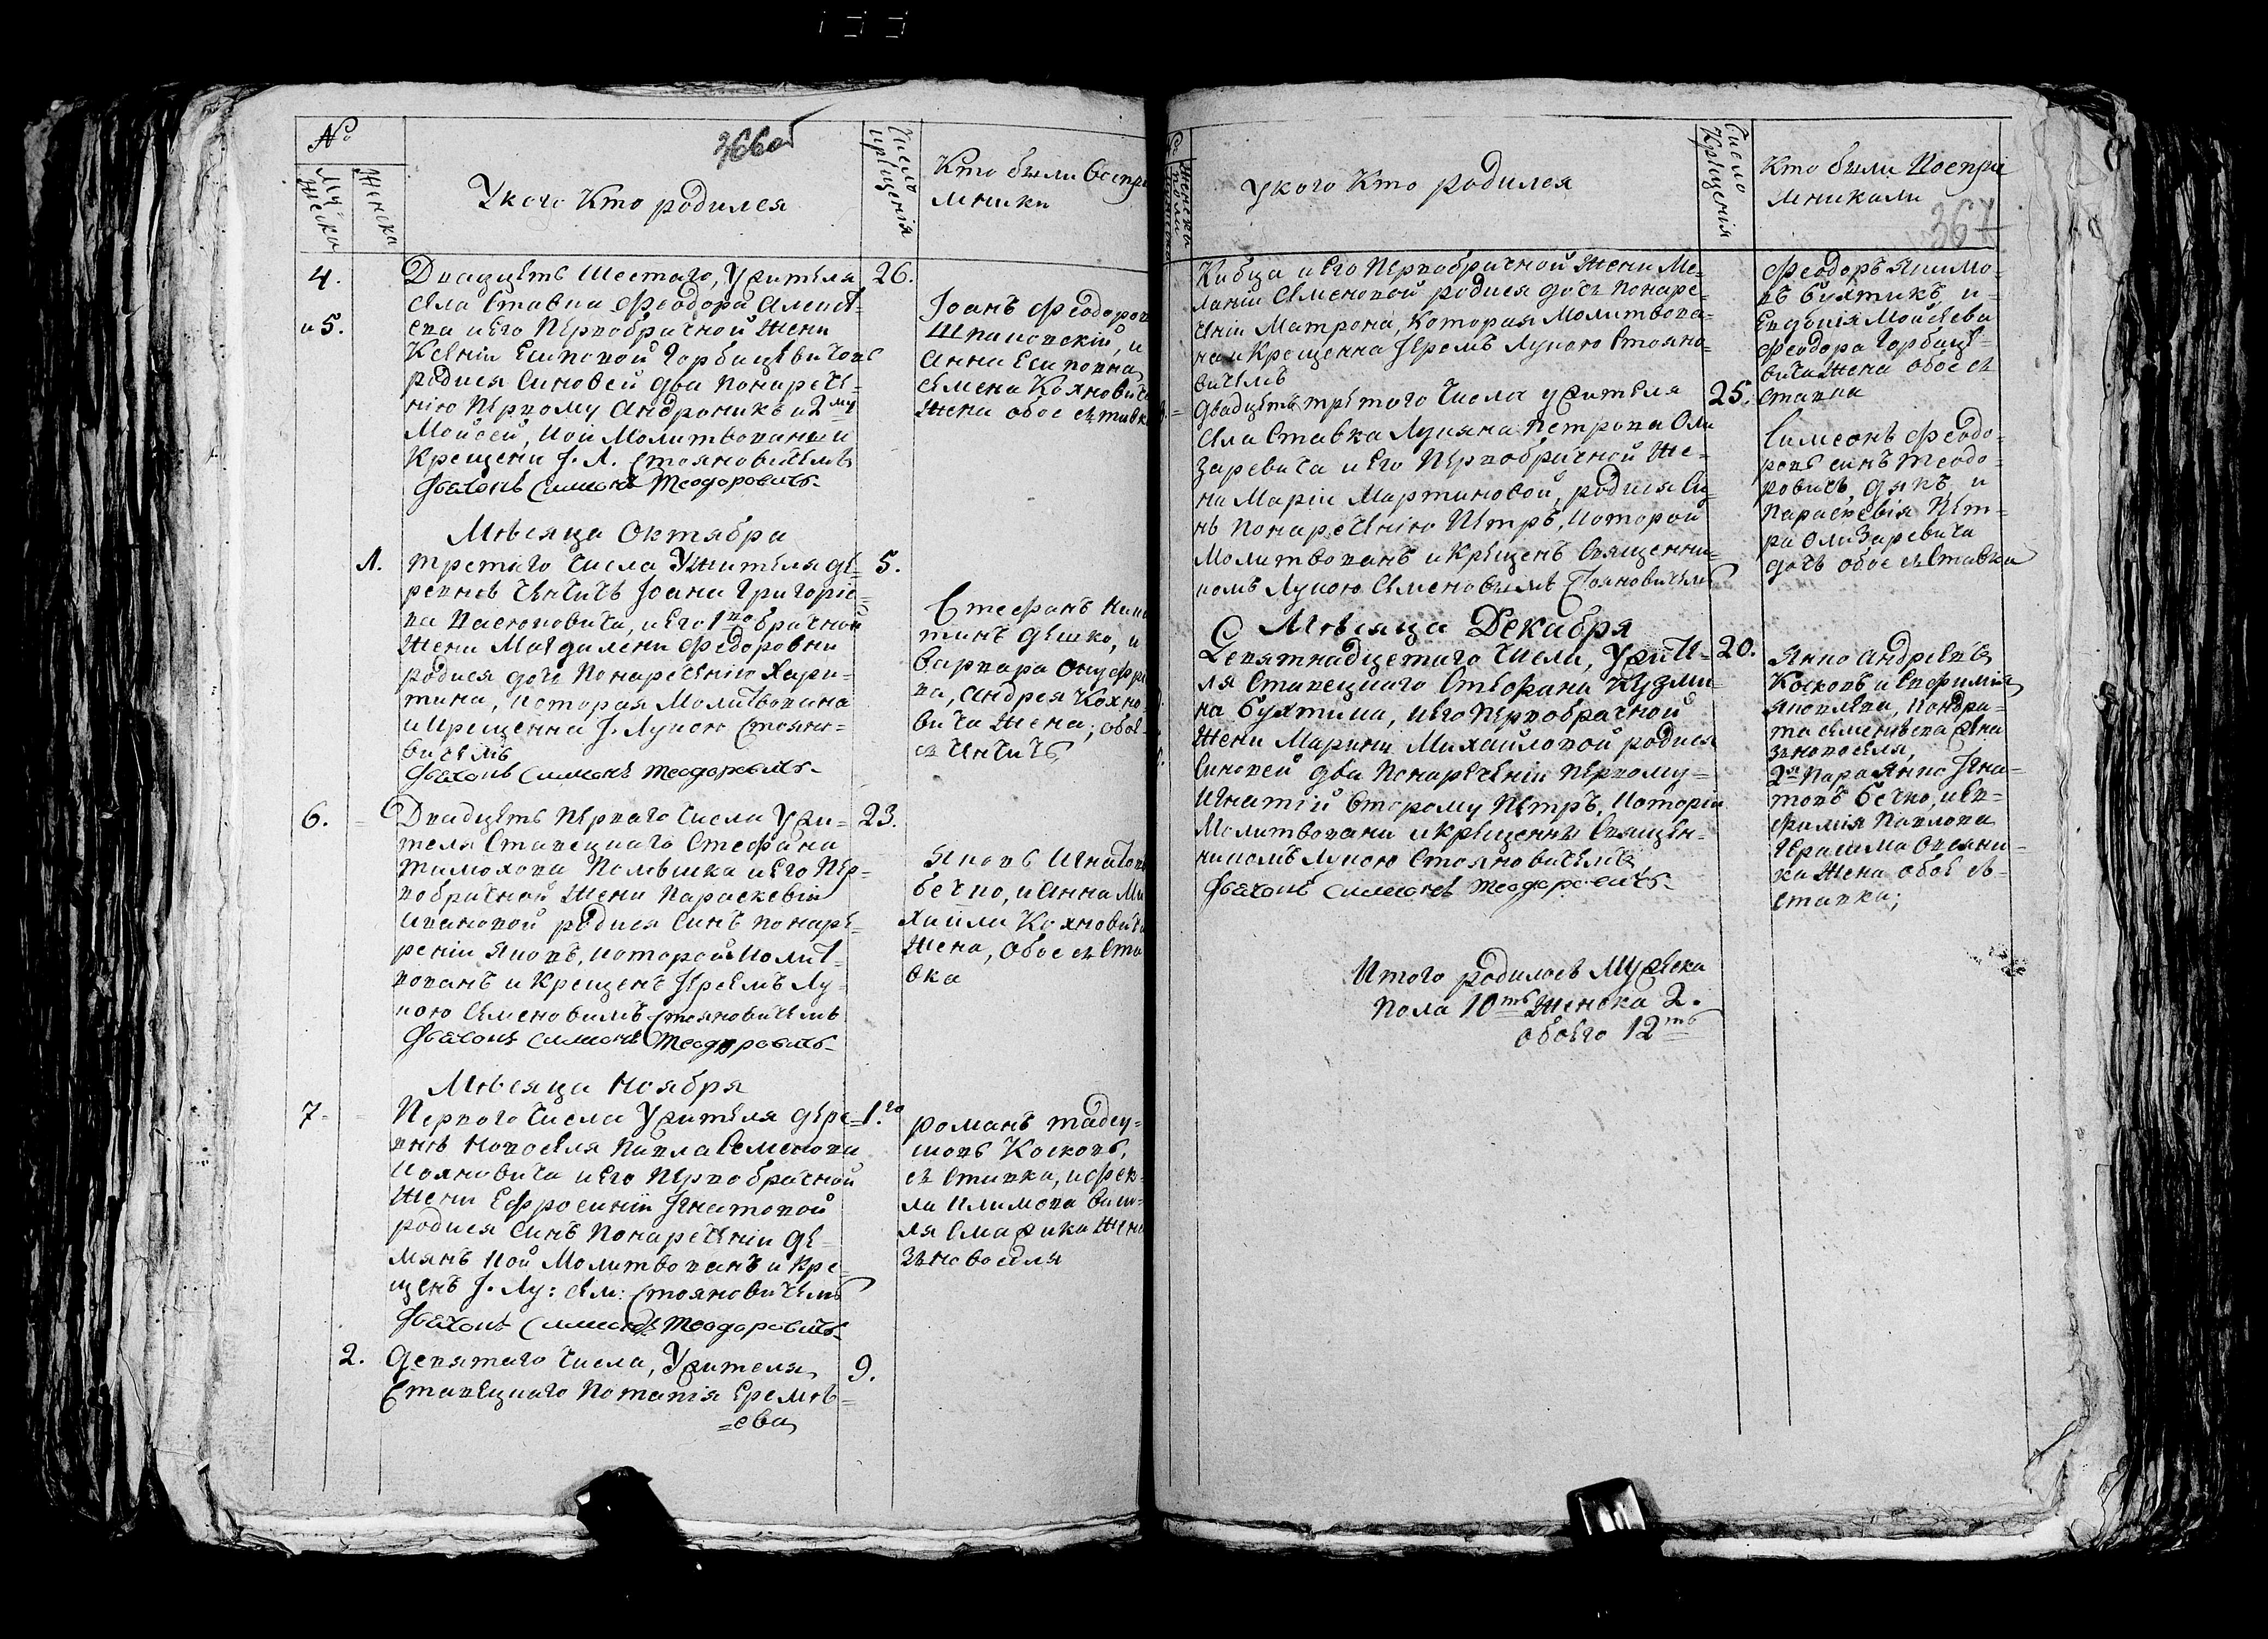 №
Му-
жеска
Женска
366об
У кого Кто родился
Число
крещения
Кто были Воспри
мники
4.
и 5.
Двадцеть Шестаго, У жителя
села Ставка Феодора Алексѣ-
ева и Его Первобрачной Жени
Ксенiи Есиповой Горбацевичовъ
родися Синовей два понарече-
нiю Первому Андроникъ и 2му
Мойсей, кои Молитвованы и
Крещени I. Л. Стояновичемъ
Дьячокъ Симеонъ Теодоровичъ
26.
Iоанъ Феодоров
Шпаковскiй, и
Анна Есиповна
Семена Кохнович
Жена обое съ Ставк
Мѣсяца Октября
1.
Третяго Числа У Жителя де-
ревнѣ Ченчичъ Iоана Григорiе-
ва Пасюковича, и Его 1во брачной
Жени Магдалени Федоровни
родися дочь Понаречению Хари-
тина, которая Молитвована
и Крещенна I. Лукою Стояно-
вичемъ
Дьячокъ Симеонъ Теодоровичъ
5.
Стефанъ Ники
тинъ Дешко, и
Варвара Онуфрi
ва, Андрея Кохно
вича Жена, обое
съ Ченчичъ
6.
Двадцеть Первого Числа У жи-
теля Ставецкаго Стефана
Тимохова Полѣшка и Его Пер-
вобрачной Жени Параскевiи
Ивановой родися Синъ понаре-
ченiи Яковъ, которой Молит-
вованъ и Крещенъ Iереемъ Лу-
кою Семеновимъ Стояновичемъ
Дьячокъ Симеонъ Теодоровичъ
23.
Яковъ Игнатов
бечко, и Анна Ми
хайли Кохнович
Жена, обое съ Ста
вка
Мѣсяца Ноября
7
Первого Числа У жителя дере-
внѣ Новоселя Павла Семенова
Кояновича и Его Первобрачной
Жени Ефросинiи Iгнатовой
родися Синъ Понареченiи Де-
мянъ кой Молитвованъ и Кре-
щенъ I. Лу: Сем: Стояновичемъ
Дьячокъ Симеонъ Теодоровичъ
1.го
романъ тадеу-
шовъ Косковъ,
съ Ставка, и Фек-
ла Климова Васи-
ля Смажика Жена
зъ Новоселя
2.
Девятаго Числа, У жителя
Ставецкаго Потапiя Еремѣ-
=ева
9.
У кого Кто родился
Число
Крещенiя
Кто были Воспри
мниками
367
Кибца и Его Первобрачной Жени Ме-
ланiи Семеновой родися дочь понаре-
ченiи Матрона, Которая Молитвова-
на и Крещенна Iереемъ Лукою Стояно-
вичемъ
Феодоръ Якимо-
въ Бухтикъ и
Евдокiя Мойсеева
Феодора Горбаце-
вича Жена обое съ
Ставка
двадцеть третого Числа у жителя
села Ставка Лукяна Петрова Оли
заревича и Его Первобрачной Же-
на Марiи Мартиновой, родися Си-
нъ Понаречению Петръ, которой
Молитвованъ и Крещенъ Священни-
комъ Лукою Семеновымъ Стояновичемъ
25.
Симеонъ Феодо-
ровъ синъ Теодо-
ровичъ, дякъ, и
Параскевiя Пет-
ра Олизаревича
дочь обое съ Ставка
Мѣсяца Декабря
Девятнадцетаго Числа, У жите-
ля Ставецкаго Стефана Кузми-
на Бухтика, и Его Первобрачной
Жени Марини Михайловой родися
Синовей два Понареченiи Первому
Игнатiй Второму Петръ, Которiи
Молитвовани и Крещенны Священ-
никомъ Лукою Стояновичемъ
Дьячокъ Симеонъ Теодоровичъ
20.
Янко Андреевъ
Косковъ и Евфимiя
Яковлева, Кондра-
та Семенѣва Жена
зъ Новоселя,
2я Пара Янко Iгна-
товъ бечко, и Ев-
фимiя Павлова
Герасима Овсяни-
ка Жена обое съ
Ставка;
Итого родилось Мужеска
Пола 10ть Женска 2.
обоего 12ть